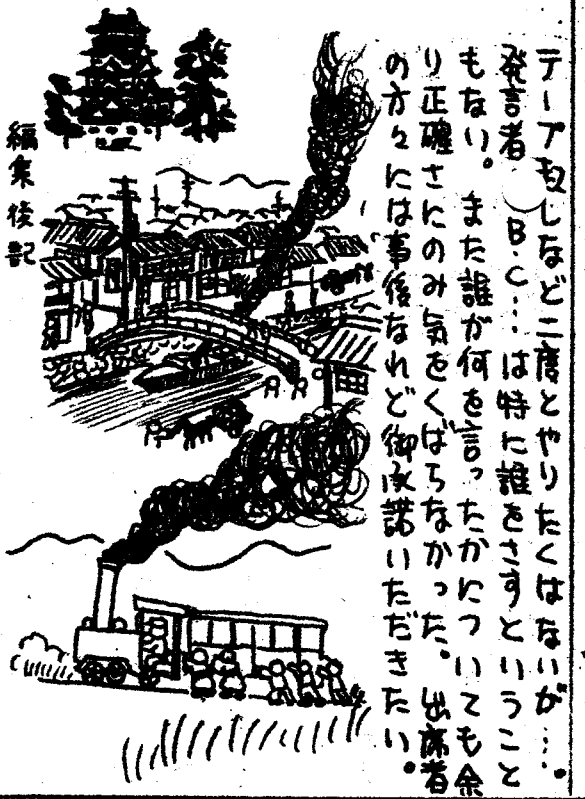 テープ起しなど二度とやりたくはないが…。
発言者 B・C…は特に誰をさすということ
もない。また誰が何を言ったかについても余
り正確さにのみ気をくばらなかった。出席者
の方々には事後なれど御承諾いただきたい。
編集後記